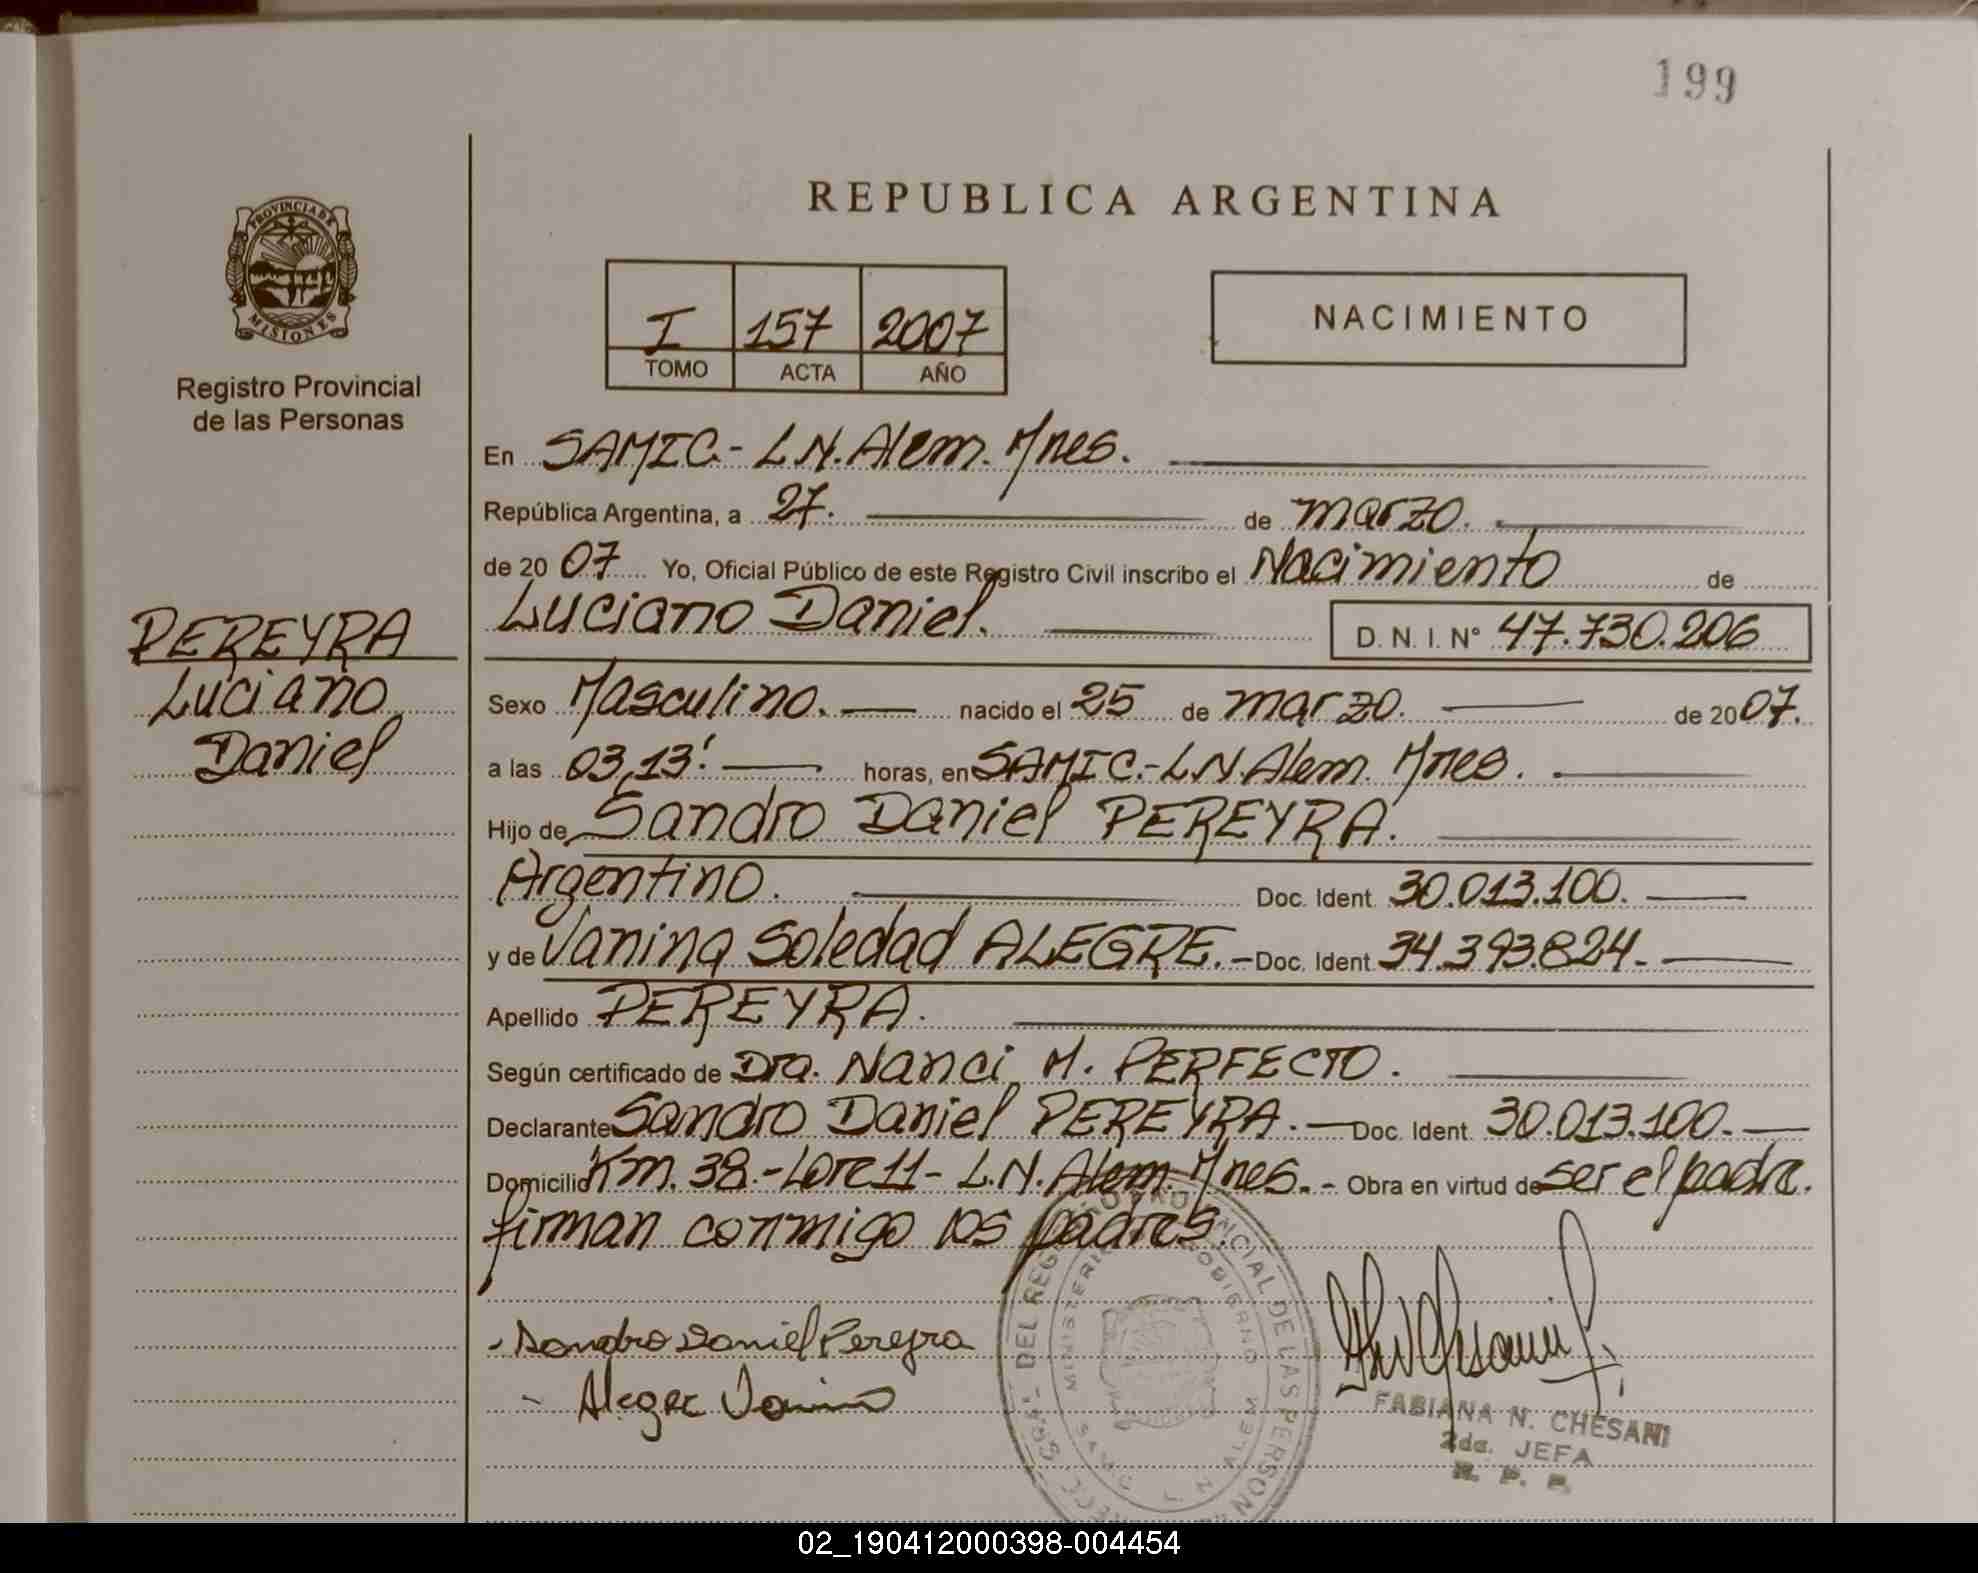 199
REPUBLICA ARGENTINA
PROVINCIA DE
MISIONES
Registro Provincial
de las Personas
I 157 2007
TOMO ACTA AÑO
NACIMIENTO
PEREYRA
Luciano
Daniel
En SAMIC.- L.N. Alem. Mnes.
República Argentina, a 27. de marzo.
de 20 07 Yo, Oficial Público de este Registro Civil inscribo el Nacimiento de
Luciano Daniel. D. N. I. N° 47.730.206
Sexo Masculino. nacido el 25 de marzo. de 20 07.
a las 03,13' horas, en SAMIC.- L.N. Alem. Mnes.
Hijo de Sandro Daniel PEREYRA.
Argentino. Doc. Ident. 30.013.100.
y de Vanina Soledad ALEGRE. - Doc. Ident. 34.393.824.
Apellido PEREYRA.
Según certificado de Dra. Nanci M. PERFECTO.
Declarante Sandro Daniel PEREYRA. Doc. Ident. 30.013.100.
Domicilio Km. 38.- Lote 11 - L.N. Alem. Mnes. - Obra en virtud de ser el padre.
firman conmigo los padres.
Sandro Daniel Pereyra
Alegre Vanina
FABIANA N. CHESANI
2da. JEFA
R. P. P.
02_190412000398-004454